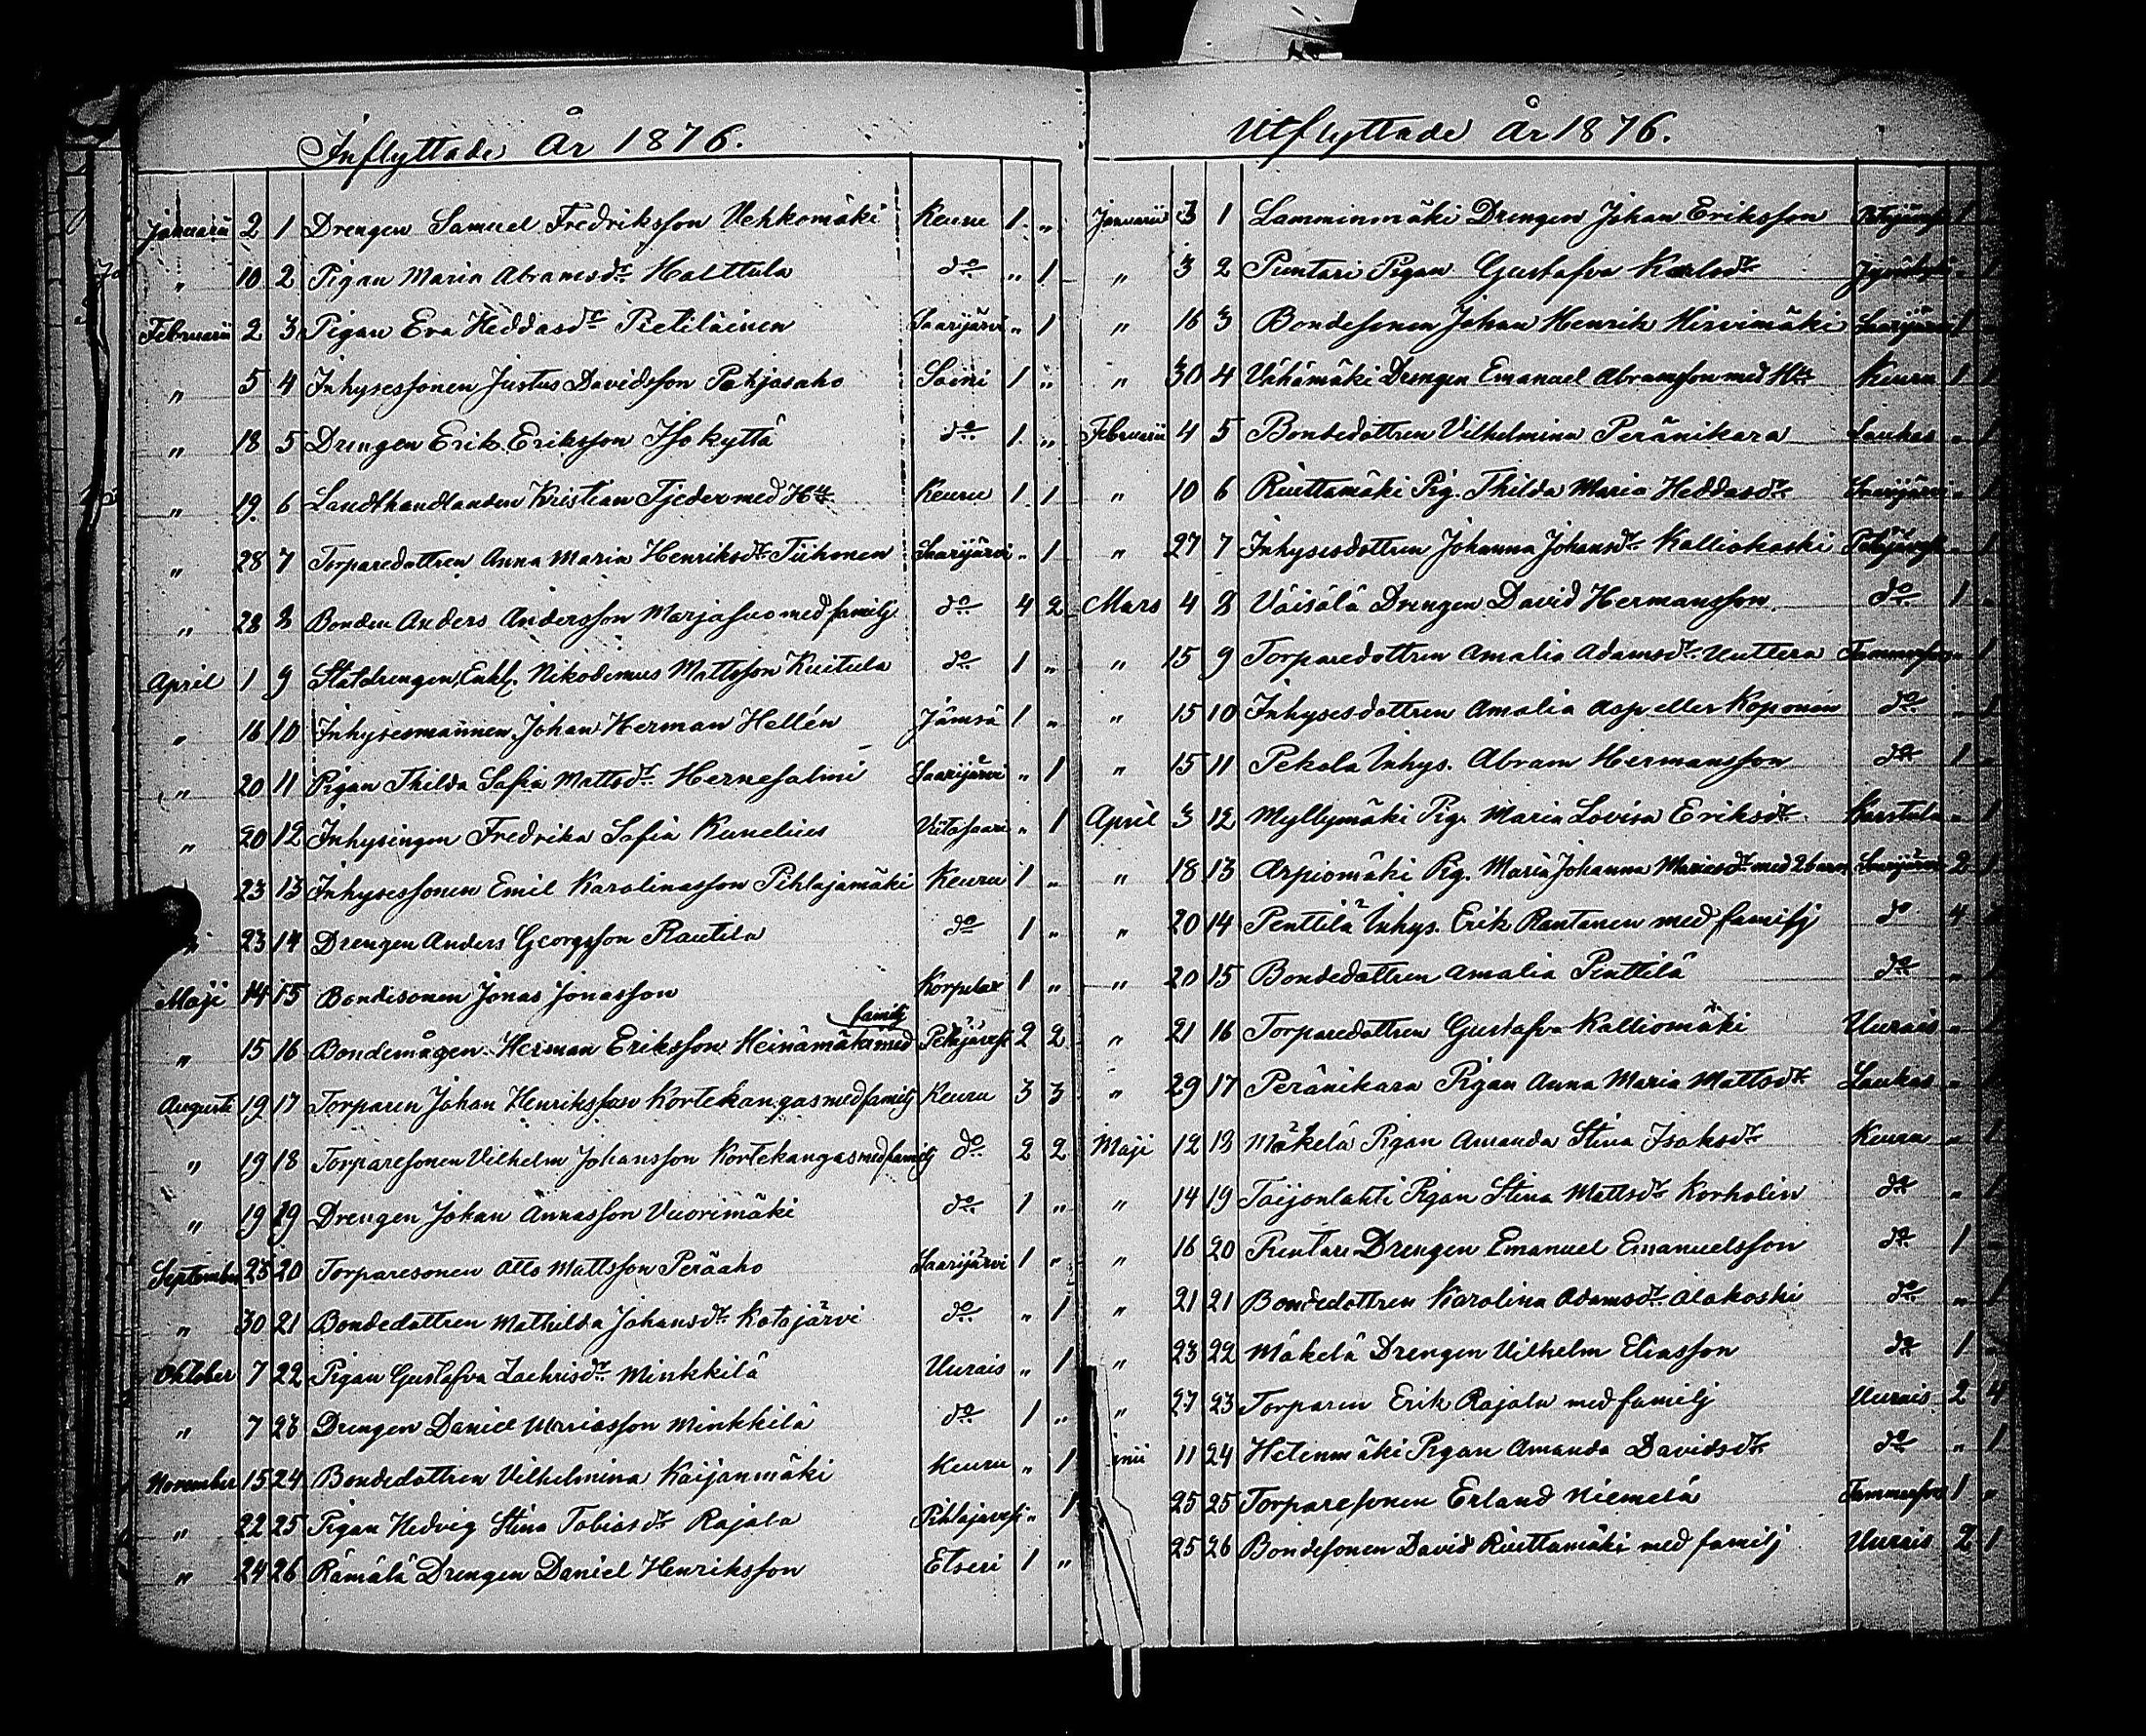 Inflyttade År 1876.
Januarii 2 1 Drengen Samuel Fredriksson Vehkomäki Keuru 1 „
„ 10 2 Pigan Maria Abramsdr Halttula do „ 1
Februarii 2 3 Pigan Eva Heddasdr Pietiläinen Saarijärvi „ 1
„ 5 4 Inhysessonen Justus Davidsson Pohjosaho Soini 1 „
„ 18 5 Drengen Erik Eriksson Isokyttä do 1 „
„ 19 6 Landthandlanden Kristian Tjeder med Hu Keuru 1 1
„ 28 7 Torparedottren Anna Maria Henriksdr Tiihonen Saarijärvi „ 1
„ 28 8 Bonden Anders Andersson Marjasuo med familj do 4 2
April 1 9 Statdrengen, Enkl. Nikodemus Mattsson Kuitula do 1 „
„ 16 10 Inhysesmannen Johan Herman Hellén Jämsä 1 „
„ 20 11 Pigan Thilda Sofia Mattsdr Hernesalmi Saarijärvi „ 1
„ 20 12 Inhysingen Fredrika Sofia Kunelius Viitasaari „ 1
23 13 Inhysessonen Emil Karolinasson Pihlajamäki Keuru 1 „
„ 23 14 Drengen Anders Georgsson Rautila do 1 „
Maji 14 15 Bondesonen Jonas Jonasson Korpilax 1 „
„ 15 16 Bondemågen Herman Eriksson Heinämäki med familj Petäjävesi 2 2
Augusti 19 17 Torparen Johan Henriksson Kortekangas med familj Keuru 3 3
„ 19 18 Torparesonen Vilhelm Johansson Kortekangas med familj do 2 2
„ 19 19 Drengen Johan Annasson Vuorimäki do 1 „
September 25 20 Torparesonen Otto Mattsson Peräaho Saarijärvi 1 „
„ 30 21 Bondedottren Mathilda Johansdr Kotajärvi do „ 1
Oktober 7 22 Pigan Gustafva Zachrisdr Minkkilä Uurais „ 1
„ 7 23 Drengen Daniel Mariasson Minkkilä do 1 „
November 15 24 Bondedottren Vilhelmina Kaijanmäki Keuru „ 1
„ 22 25 Pigan Hedvig Stina Tobiasdr Rajala Pihlajavesi „ 1
„ 24 26 Rämälä Drengen Daniel Henriksson Etseri 1 „
Utflyttade År 1876.
Januarii 3 1 Lamminmäki Drengen Johan Eriksson Petäjävesi 1 „
„ 3 2 Puntari Pigan Gustafva Karlsdr Jyväskylä „ 1
„ 16 3 Bondesonen Johan Henrik Hirvimäki Saarijärvi 1 „
„ 30 4 Vähämäki Drengen Emanuel Abramsson med Hu Keuru 1 1
Februarii 4 5 Bondedottren Vilhelmina Peränikara Laukas „ 1
„ 10 6 Riuttamäki Pig. Thilda Maria Heddasdr Saarijärvi „ 1
„ 27 7 Inhysesdottren Johanna Johansdr Kalliokoski Petäjävesi „ 1
Mars 4 8 Väisälä Drengen David Hermansson do 1 „
„ 15 9 Torparedottren Amalia Adamsdr Uuttera Tammerfors „ 1
„ 15 10 Inhysesdottren Amalia Asp eller Koponen do „ 1
„ 15 11 Pekola Inhys. Abram Hermansson do 1 „
April 3 12 Myllymäki Pig. Maria Lovisa Eriksdr Karstula „ 1
„ 18 13 Arpiomäki Pig. Maria Johanna Mariasdr med 2 barn Saarijärvi 2 1
„ 20 14 Penttilä Inhys. Erik Rantanen med familj do 4
„ 20 15 Bondedottren Amalia Penttilä do „ 1
„ 21 16 Torparedottren Gustafva Kalliomäki Uurais „ 1
„ 29 17 Peränikara Pigan Anna Maria Mattsdr Laukas „ 1
Maji 12 18 Mäkelä Pigan Amanda Stina Isaksdr Keuru „ 1
„ 14 19 Taijonlahti Pigan Stina Mattsdr Korholin do „ 1
„ 16 20 Puntari Drengen Emanuel Emanuelsson do 1 „
„ 21 21 Bondedottren Karolina Adamsdr Alakoski do „ 1
„ 23 22 Mäkelä Drengen Vilhelm Eliasson do 1 „
„ 27 23 Torparen Erik Rajala med familj Uurais 2 4
inii 11 24 Hetenmäki Pigan Amanda Davidsdr do „ 1
25 25 Torparesonen Erland Niemelä Tammerfors 1 „
25 26 Bondesonen David Riuttamäki med familj Uurais 2 1